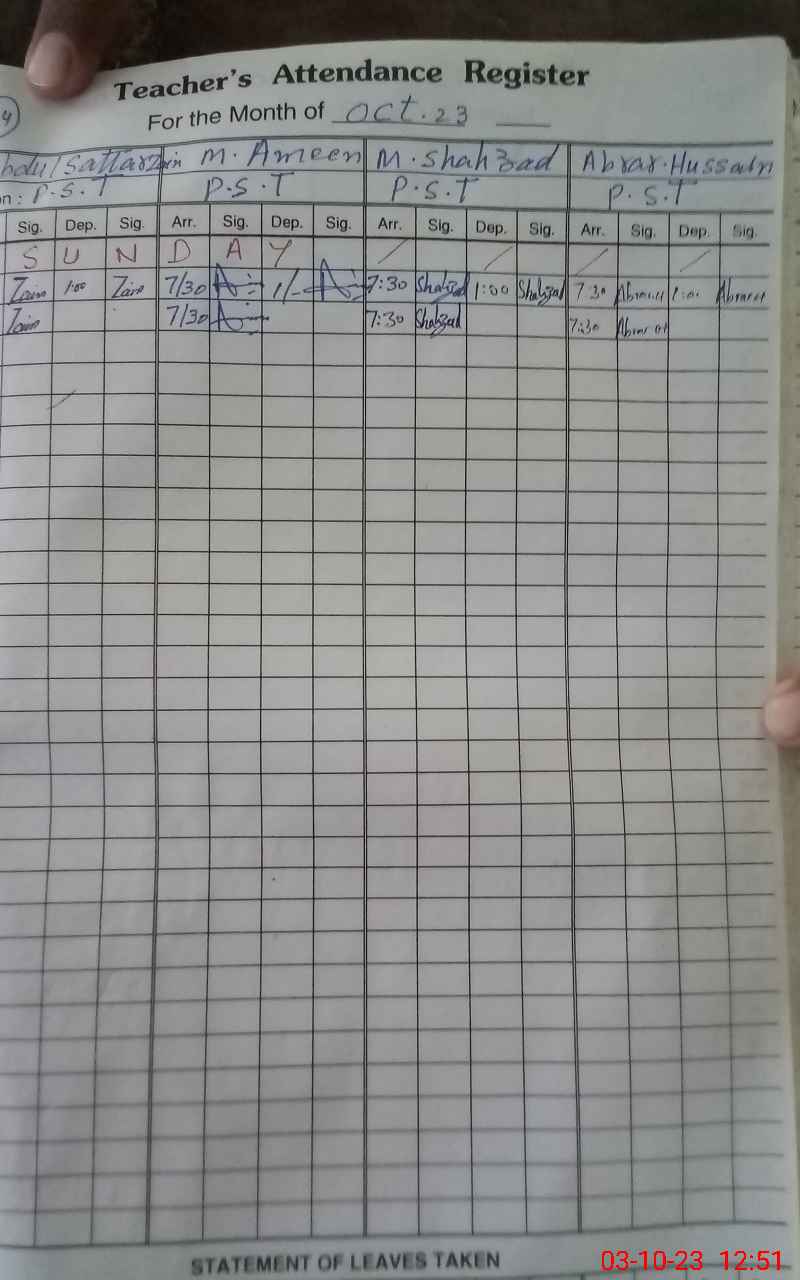 Teacher's Attendance Register
For the Month of Oct. 23
4
M. Ameen M. Shahzad Abrar. Hussain
P.S.T P.S.T P.S.T P.S.T
Sig. Dep. Sig. Arr. Sig. Dep. Sig. Arr. Sig. Dep. Sig. Arr. Sig. Dep. Sig.
S U N D A Y
Zain 1:00 Zain 7/30 1/- 7:30 Shahzad 1:00 Shahzad 7:30
Zain 7/30 7:30 Shahzad 7:30
STATEMENT OF LEAVES TAKEN
03-10-23 12:51